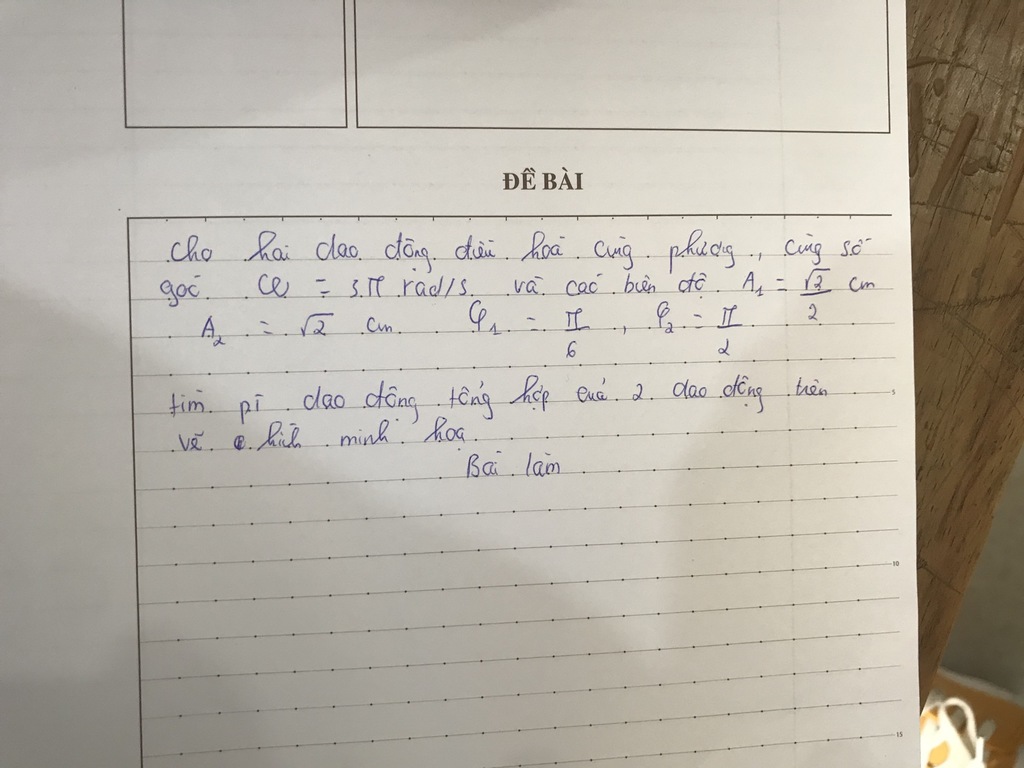 ĐỀ BÀI
Cho hai dao động điều hoà cùng phương, cùng số
góc ω = 5π rad/s và các biên độ A₁ = √3/2 cm
A₂ = √2 cm φ₁ = π/6, φ₂ = π/2
5
tìm pt dao động tổng hợp của 2 dao động trên
vẽ hình minh hoạ
Bài làm
10
15